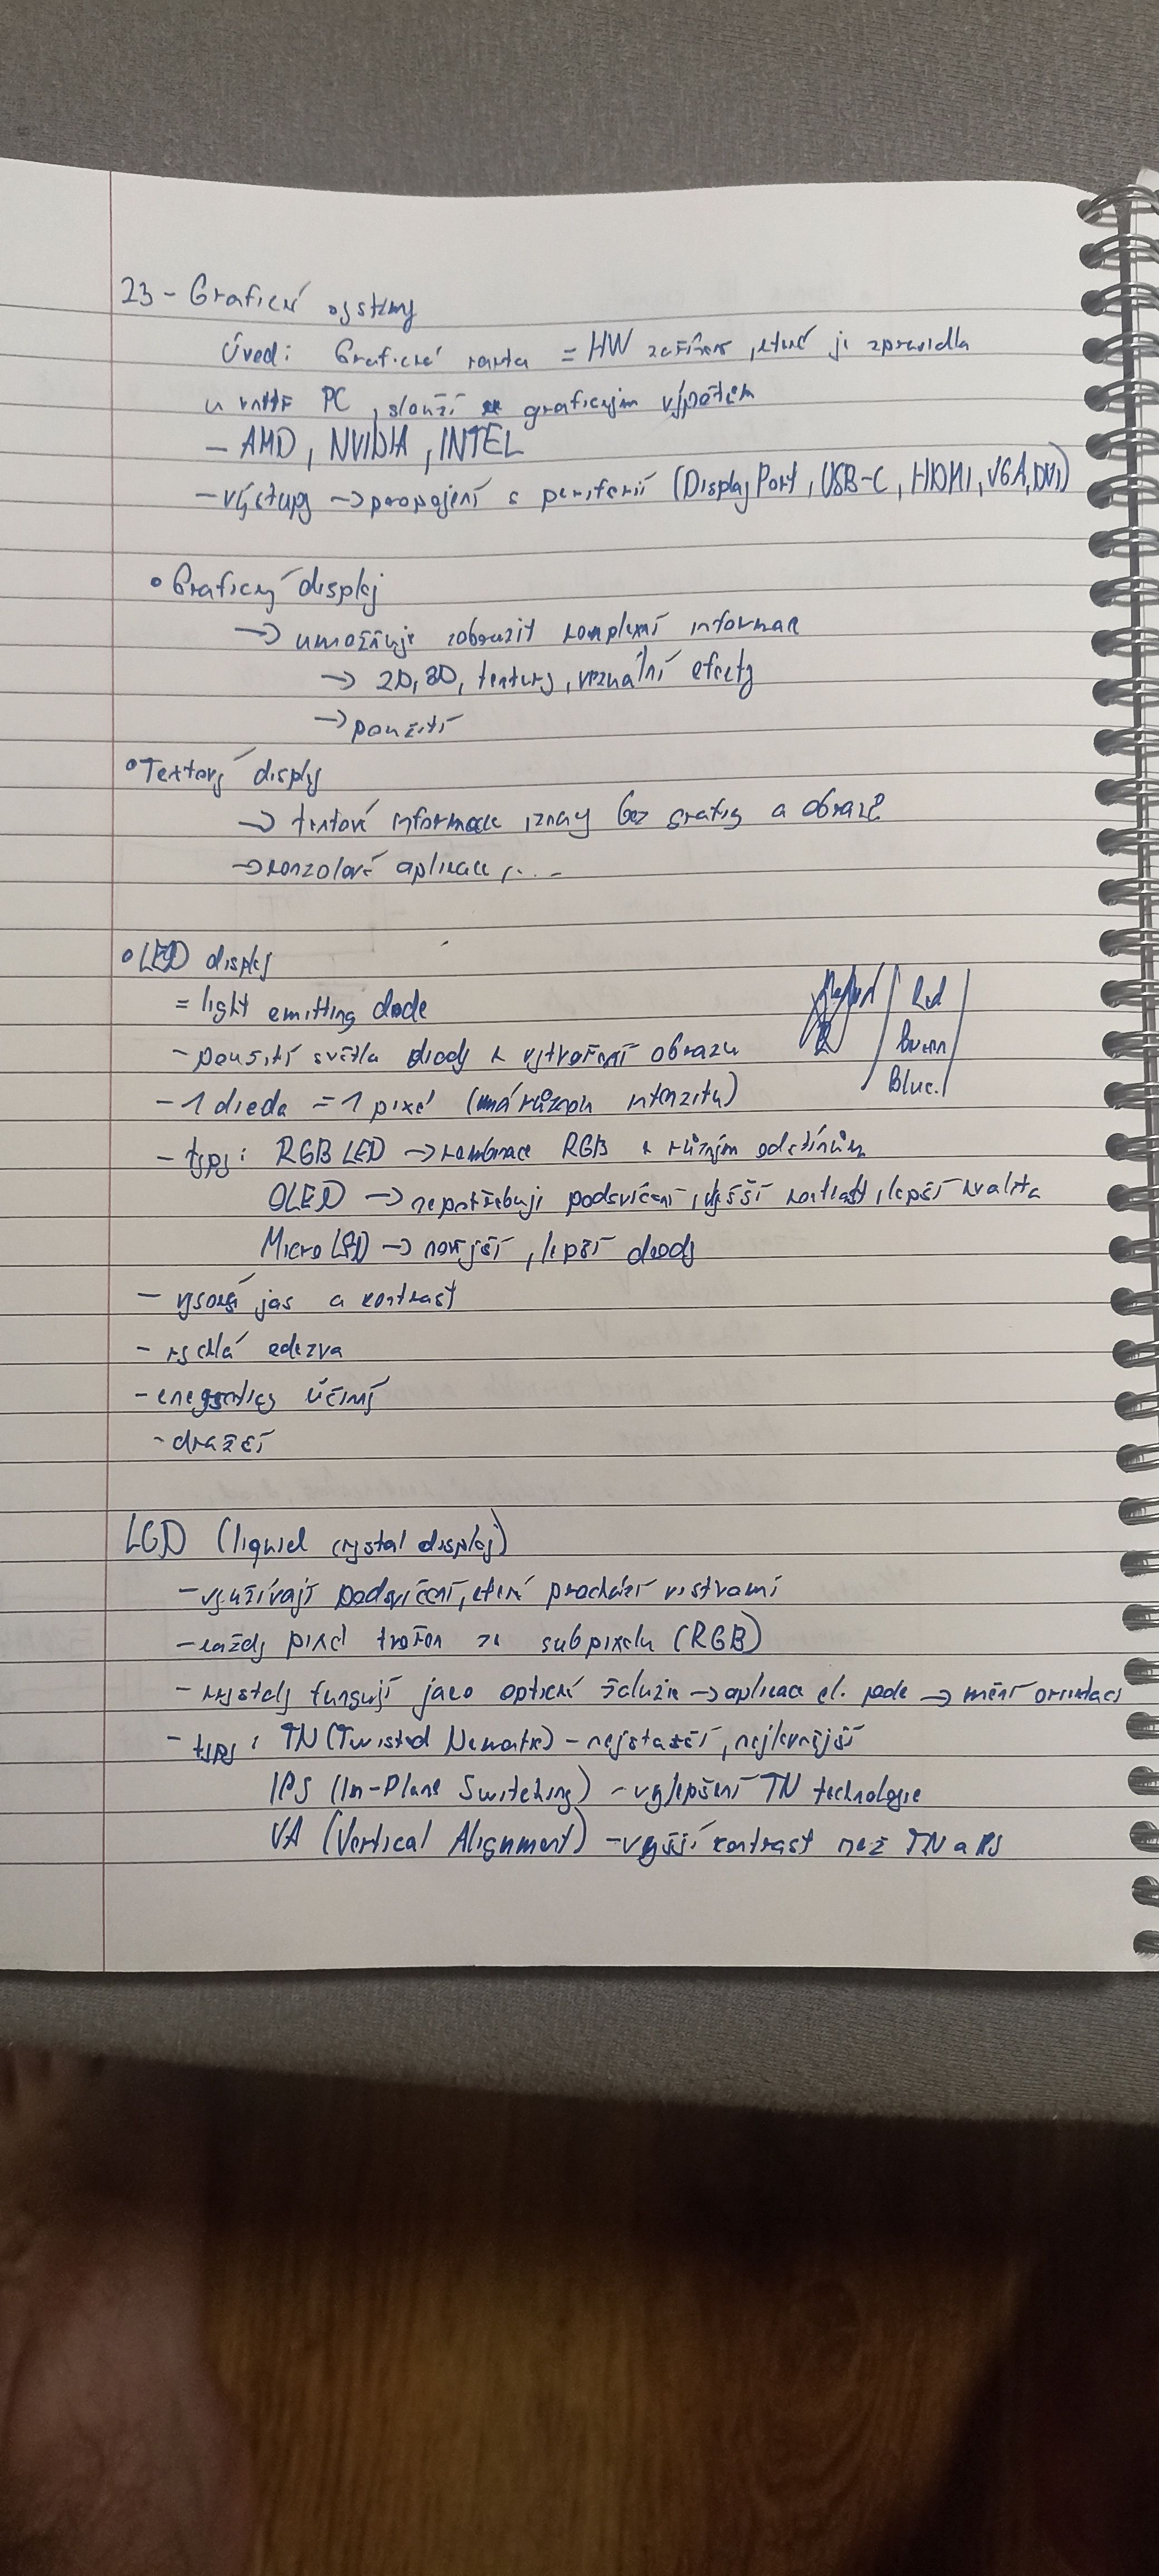 23 - Grafické systémy
Úvod: Grafická karta = HW zařízení, které je zpravidla
uvnitř PC, slouží k grafickým výpočtům
- AMD, NVIDIA, INTEL
- výstupy → propojení s periferií (DisplayPort, USB-C, HDMI, VGA, DVI)
• Grafický displej
→ umožňuje zobrazit komplexní informace
→ 2D, 3D, textury, vizuální efekty
→ použití
• Textový displej
→ textové informace, znaky bez grafiky a obrazů
→ konzolové aplikace, ...
• LED displej
= light emitting diode
Red
- použití světla diody k vytvoření obrazu
Green
- 1 dioda = 1 pixel (má různou intenzitu)
Blue
- typy: RGB LED → kombinace RGB k různým odstínům
OLED → nepotřebují podsvícení, vyšší kontrast, lepší kvalita
Micro LED → novější, lepší diody
- vysoký jas a kontrast
- rychlá odezva
- energeticky účinný
- dražší
LCD (liquid crystal display)
- využívají podsvícení, které prochází vrstvami
- každý pixel tvořen ze subpixelu (RGB)
- krystaly fungují jako optické žaluzie → aplikace el. pole → mění orientaci
- typy: TN (Twisted Nematic) - nejstarší, nejlevnější
IPS (In-Plane Switching) - vylepšení TN technologie
VA (Vertical Alignment) - vyšší kontrast než TN a IPS